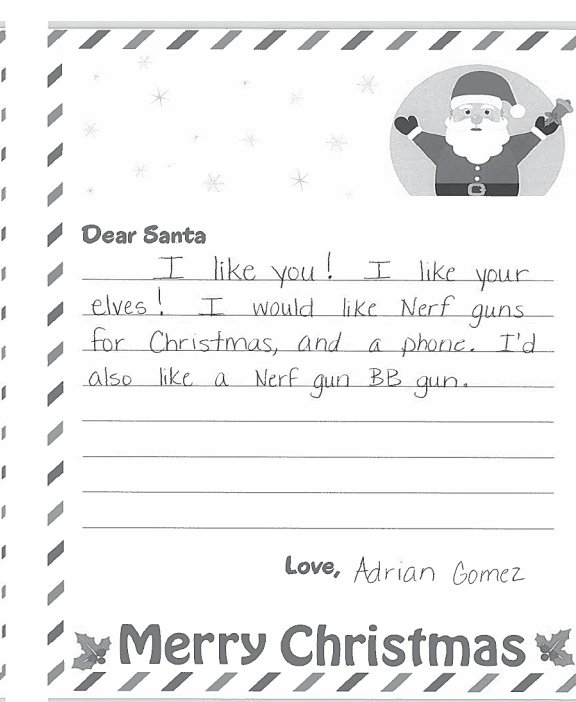 Dear Santa
I like you! I like your
elves! I would like Nerf guns
for Christmas, and a phone. I'd
also like a Nerf gun BB gun.
Love, Adrian Gomez
Merry Christmas